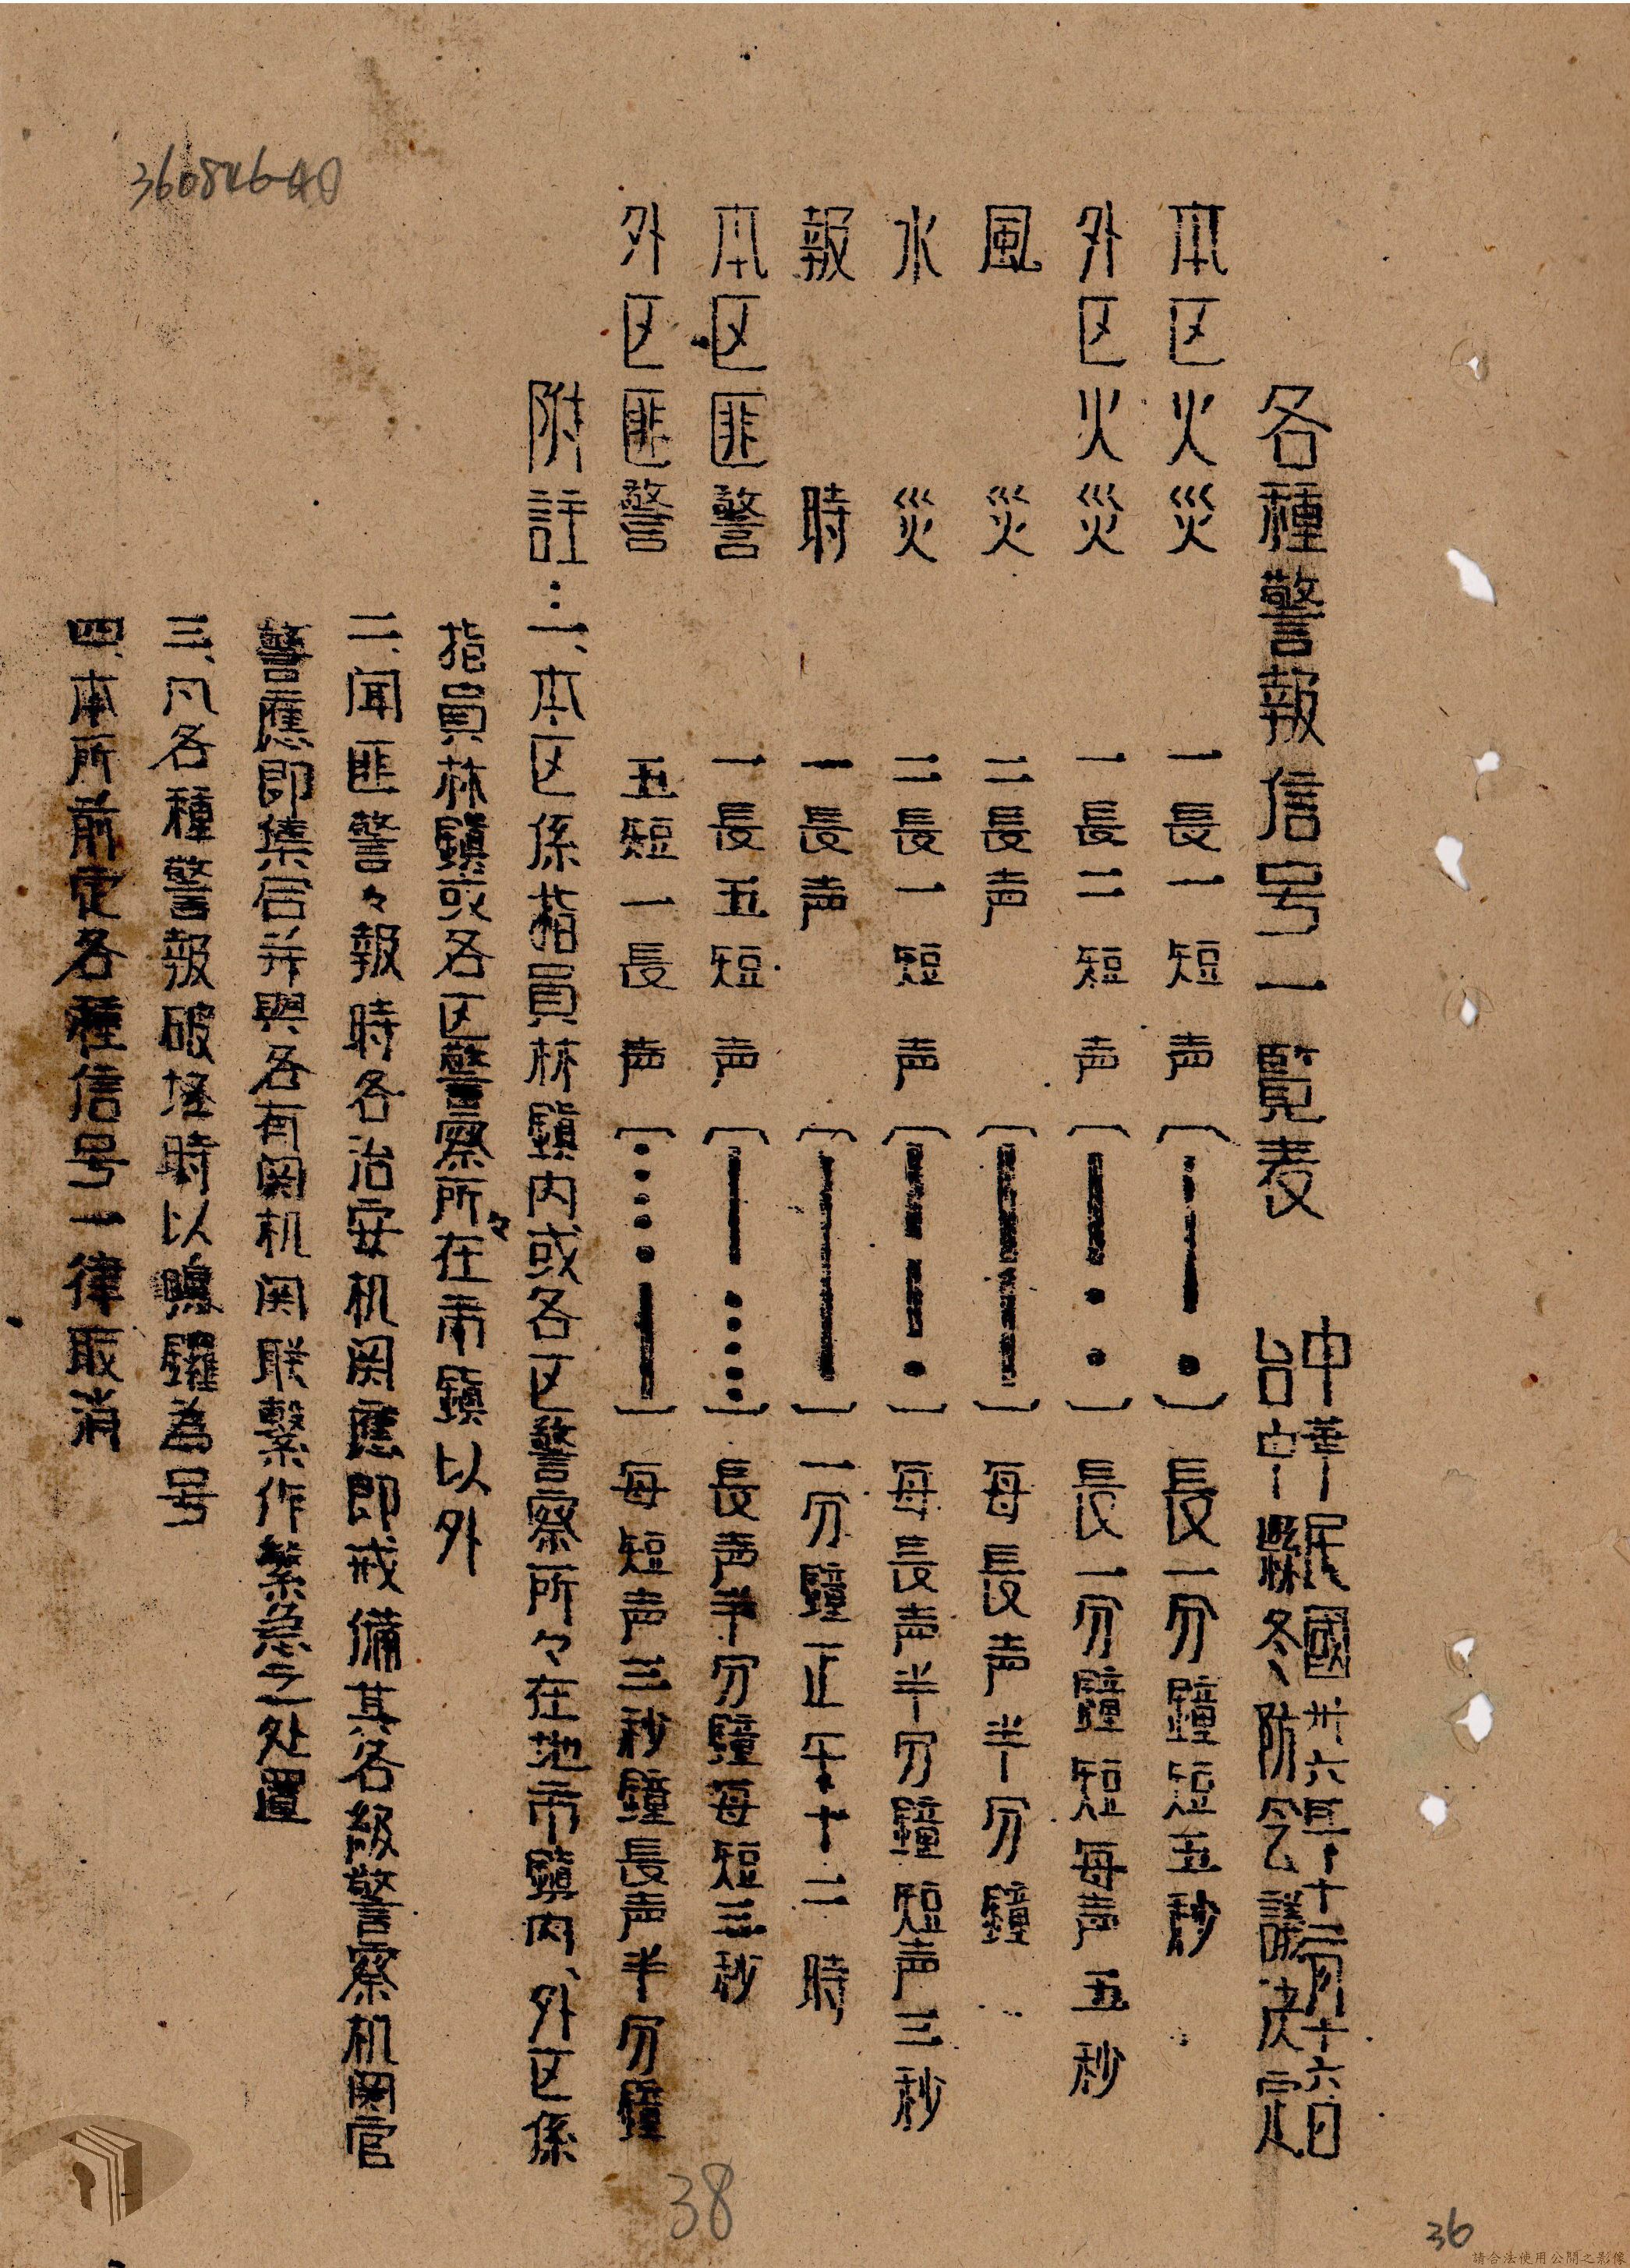 各種警報信号一覧表
中華民國卅六年十二月十六日
台中縣冬防会議決定
本区火災 一長一短声 長一分鐘短五秒
外区火災 一長二短声 長一分鐘短每声五秒
風災 二長声 每長声半分鐘
水災 二長一短声 每長声半分鐘短声三秒
報時 一長声 一分鐘正午十二時
本区匪警 一長五短声 長声半分鐘每短三秒
外区匪警 五短一長声 每短声三秒鐘長声半分鐘
附註：一、本区係指員林鎮内或各区警察所々在地市鎮内、外区係
指員林鎮或各区警察所々在市鎮以外
二、闻匪警々報時各治安机関應即戒備其各級警察机関官
警應即集合并與各有関机関联繫作緊急之处置
三、凡各種警報破坏時以鳴鑼為号
四、本所前定各種信号一律取消
360846-40
38
36
請合法使用公開之影像